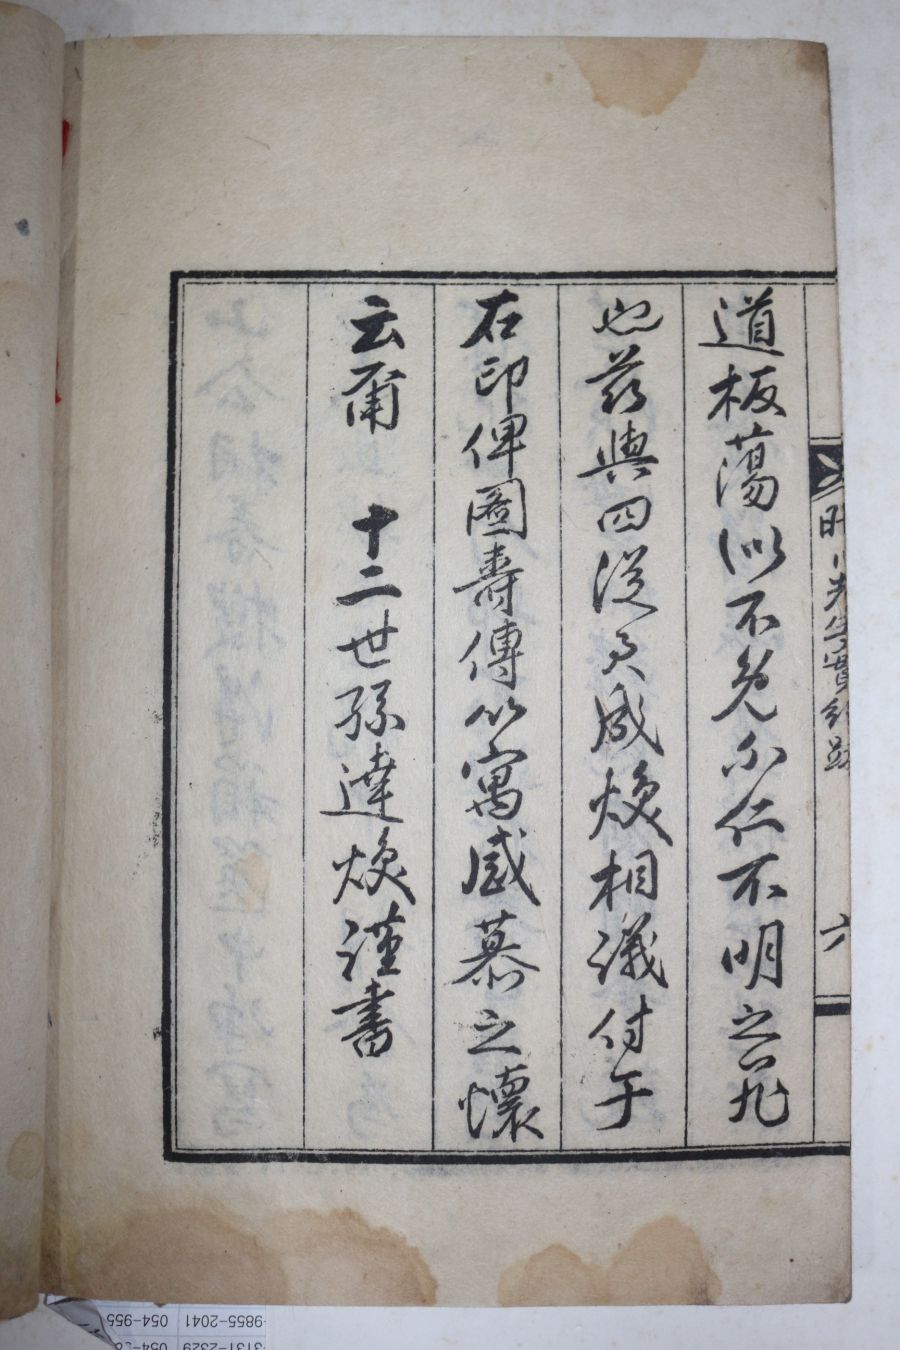 道板蕩似不免不仁不明之罪
也茲與四從兄成煥相議付于
石印俾圖壽傳以寓感慕之懷
云爾 十二世孫達煥謹書
川先生實紀跋 六
-9855-2041 054-955
3131-2329 054-